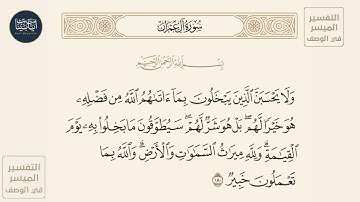 التفسير
الميسر
في الوصف
سُورَةُ آلِ عِمْرَان
بِسْمِ اللَّهِ الرَّحْمَٰنِ الرَّحِيمِ
وَلَا يَحْسَبَنَّ ٱلَّذِينَ يَبْخَلُونَ بِمَآ ءَاتَىٰهُمُ ٱللَّهُ مِن فَضْلِهِۦ
هُوَ خَيْرًا لَّهُم ۖ بَلْ هُوَ شَرٌّ لَّهُمْ ۖ سَيُطَوَّقُونَ مَا بَخِلُوا۟ بِهِۦ يَوْمَ
ٱلْقِيَٰمَةِ ۗ وَلِلَّهِ مِيرَٰثُ ٱلسَّمَٰوَٰتِ وَٱلْأَرْضِ ۗ وَٱللَّهُ بِمَا
تَعْمَلُونَ خَبِيرٌ ١٨٠
التفسير
الميسر
في الوصف